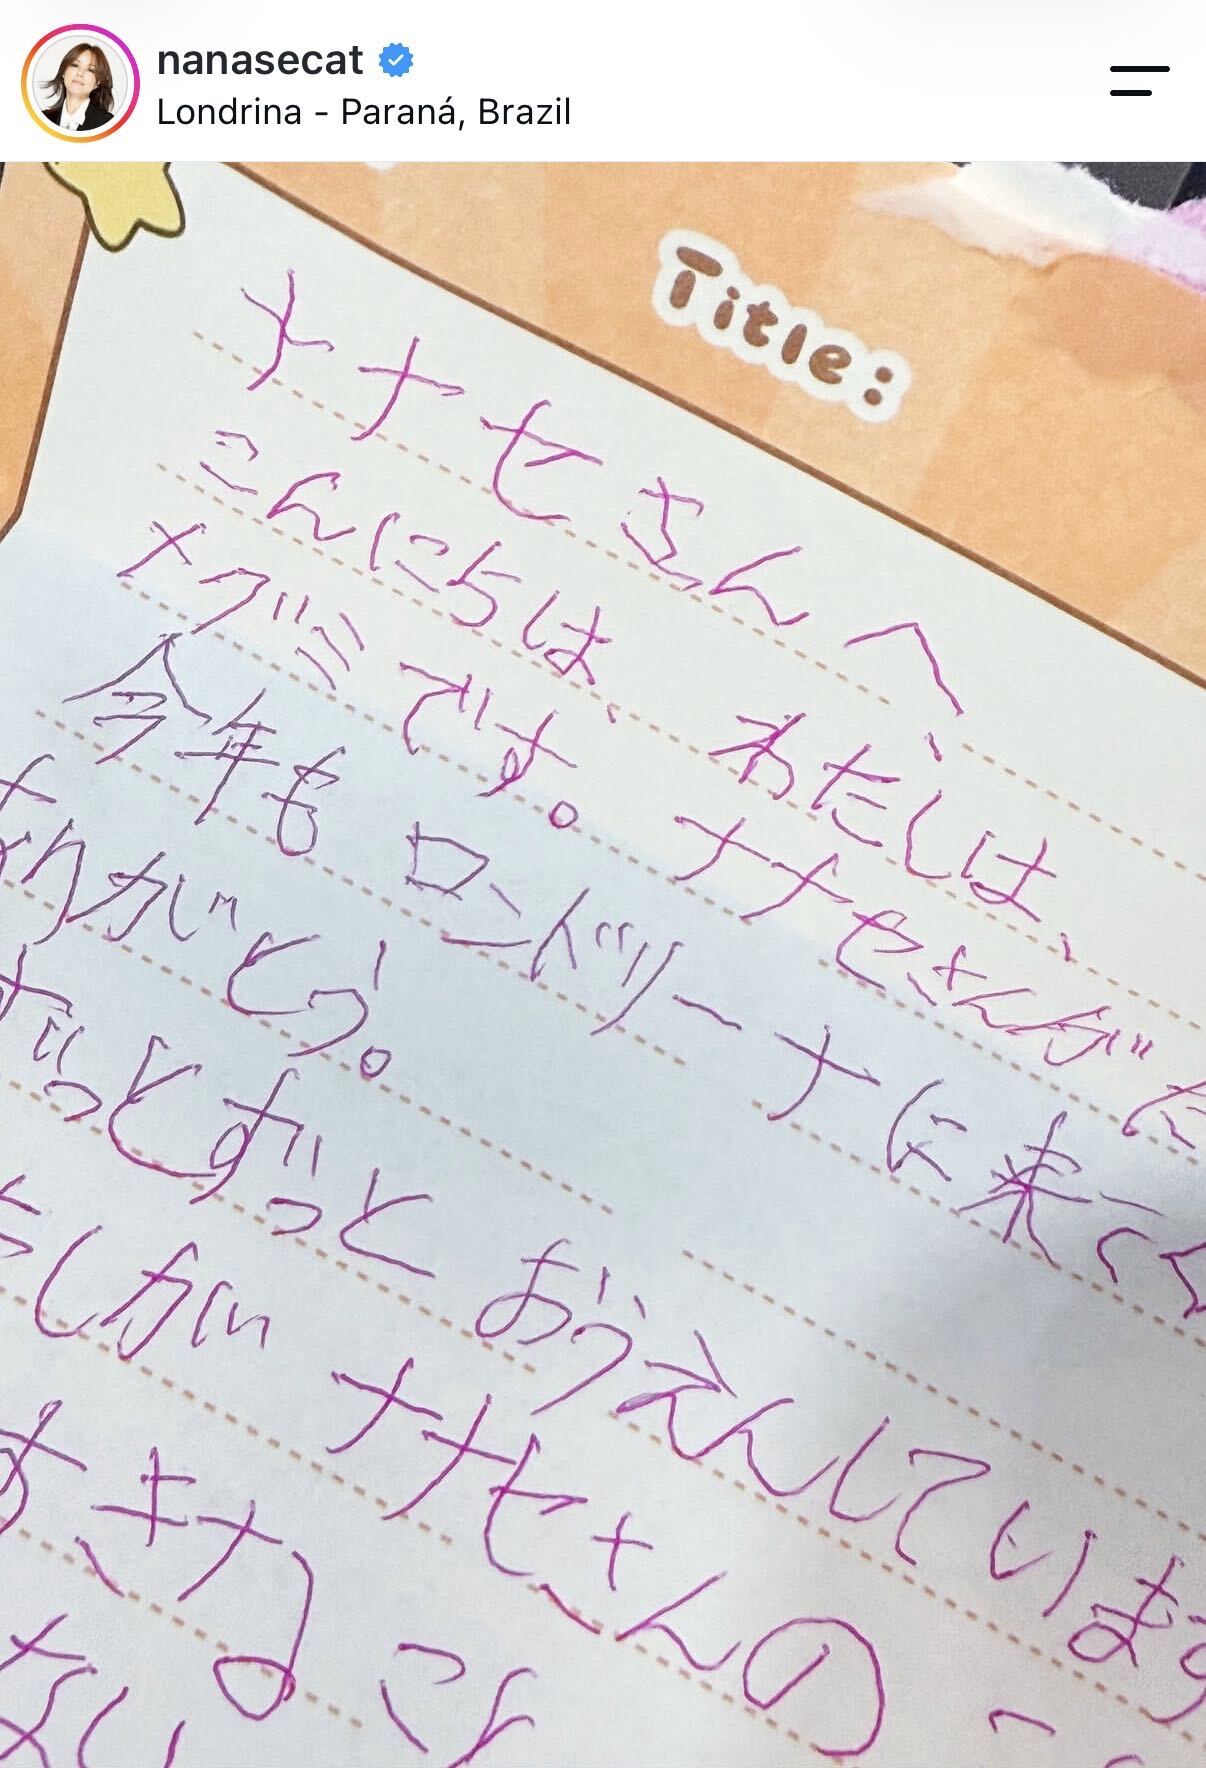 nanasecat
Londrina - Paraná, Brazil
Title:
ナナセさんへ、
こんにちは、わたしは、
メグミです。ナナセさんが
今年もロンドリーナに来てく
ありがとう。
ずっとずっとおうえんしています
たしが ナナセさんの こ
すきな こと